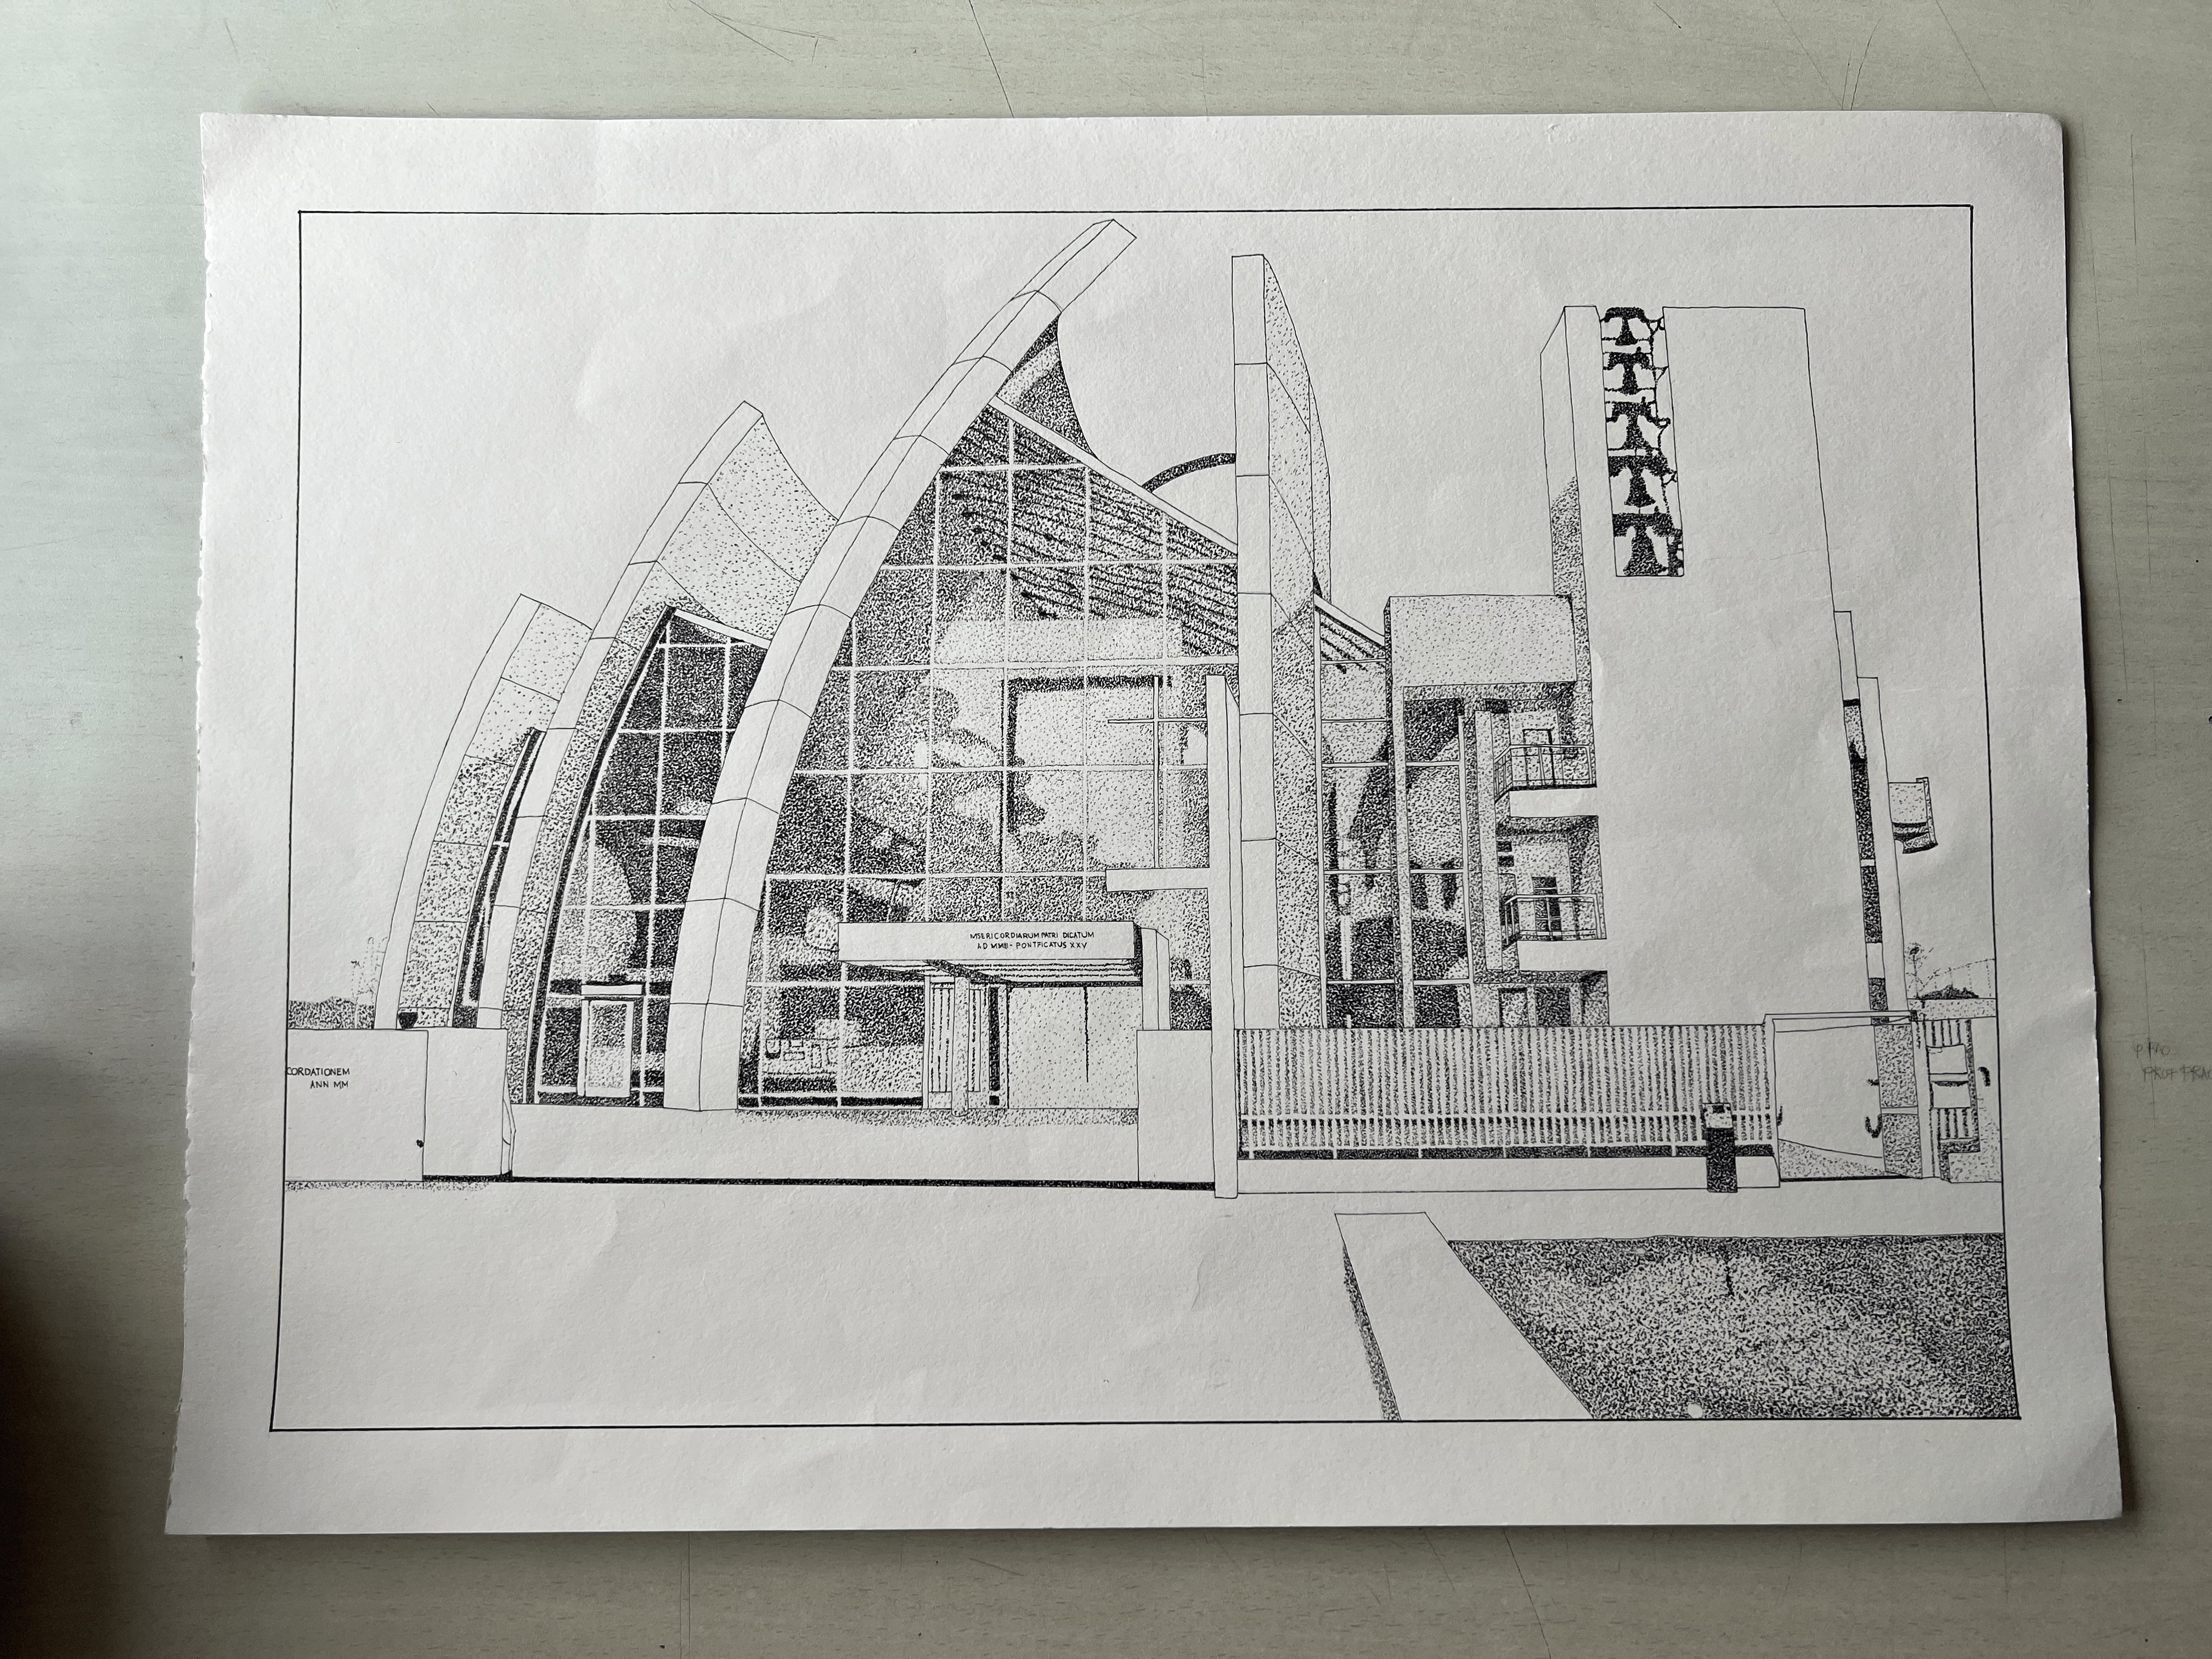 MISERICORDIARUM PATRI DICATUM
AD MMIII - PONTFICATUS XXV
CORDATIONEM
ANN MM